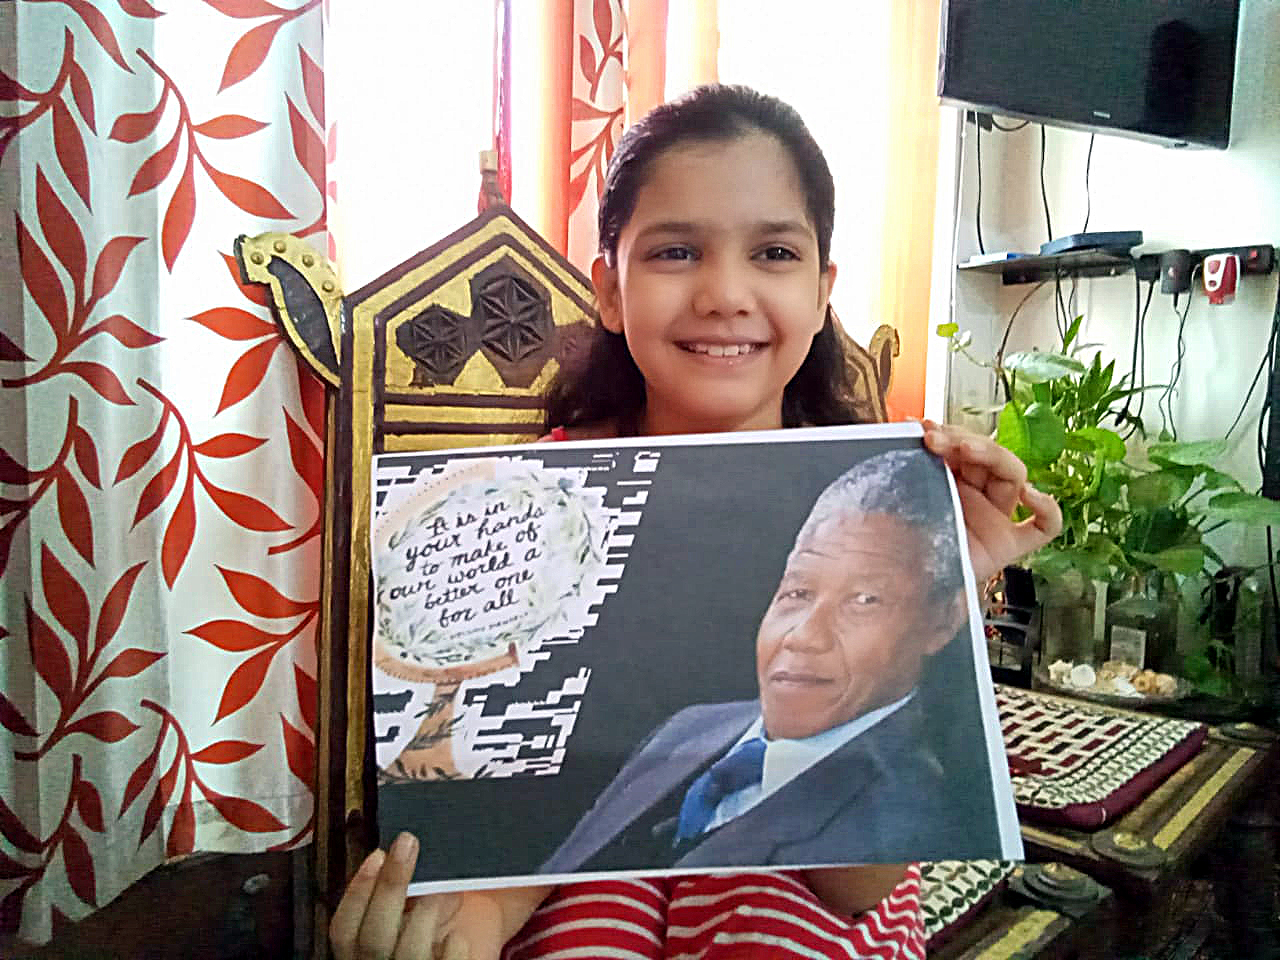 It is in
your hands
to make of
our world a
better one
for all
- NELSON MANDELA